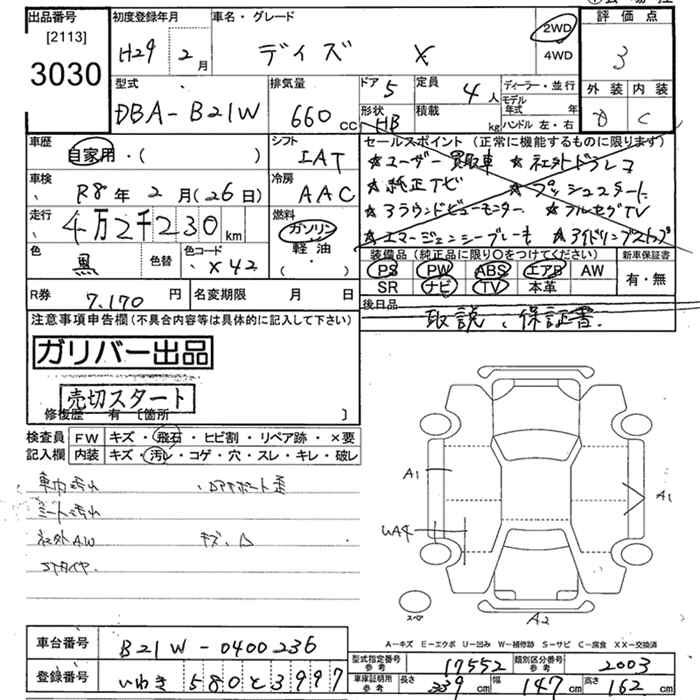 出品番号 初度登録年月 車名・グレード 評価点
[2113]
3030
H29年 2月 デイズ X 2WD 4WD 3
型式 排気量 ドア 5 定員 4人 ディーラー・並行 外装 内装
DBA-B21W 660cc 形状 HB 積載 kg モデル年式 年 ハンドル 左・右 D C
車歴 自家用・( ) シフト IAT セールスポイント (正常に機能するものに限ります)
★ユーザー買取車 ★社外ドラレコ
車検 R8年 2月(26日) 冷房 AAC ★純正TV ★プッシュスタート
走行 4万2千230km 燃料 ガソリン 軽油 ・( ) ★アラウンドビューモニター ★フルセグTV
★エマージェンシーブレーキ ★アイドリングストップ
色 黒 色替 色コード X42 装備品(純正品に限り○をつけてください) 新車保証書
PS PW ABS エアB AW 有・無
SR ナビ TV 本革
R券 7.170円 名変期限 月 日 後日品
取説、保証書.
注意事項申告欄(不具合内容等は具体的に記入して下さい)
ガリバー出品
売切スタート
修復歴 有 [箇所 ]
検査員 FW キズ・飛石・ヒビ割・リペア跡・×要
記入欄 内装 キズ・汚レ・コゲ・穴・スレ・キレ・破レ
車内汚れ
シート汚れ
社外AW キズ、
A1 A1
UA4
スペア A2
A-キズ E-エクボ U-凹み W-補修跡 S-サビ C-腐食 XX-交換済
車台番号 B21W-0400236
型式指定番号 参考 17552 類別区分番号 参考 2003
登録番号 いわき 580 と 3997
車庫証明用 参考 長さ 339cm 幅 147cm 高さ 162cm